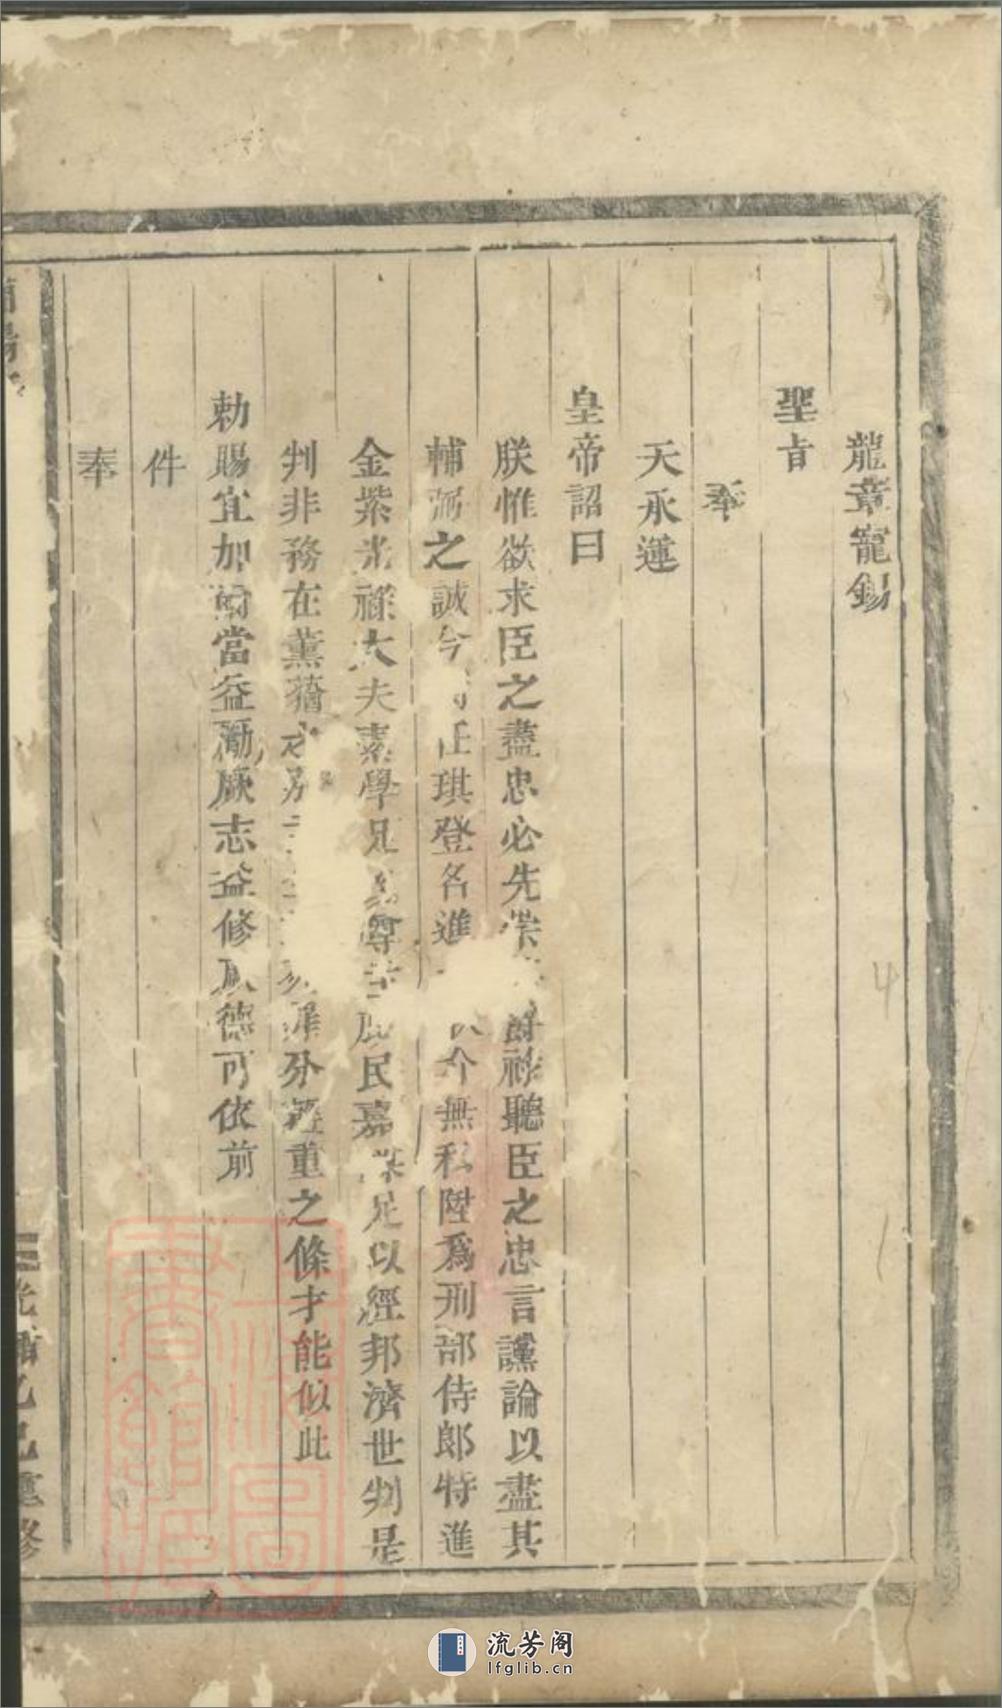 龍章寵錫
聖旨
奉
天承運
皇帝詔曰
朕惟欲求臣之盡忠必先崇爵祿聽臣之忠言讜論以盡其
輔弼之誠今任琪登名進介無私陞爲刑部侍郎特進
金紫光祿大夫素學足尊庇民嘉謀足以經邦濟世判是
判非務在薰蕕之别罪分輕重之條才能似此
勅賜宜加爾當益勵厥志益修厥德可依前
件
奉
光緒乙巳重修
上海圖書館藏
流芳阁
lfglib.cn